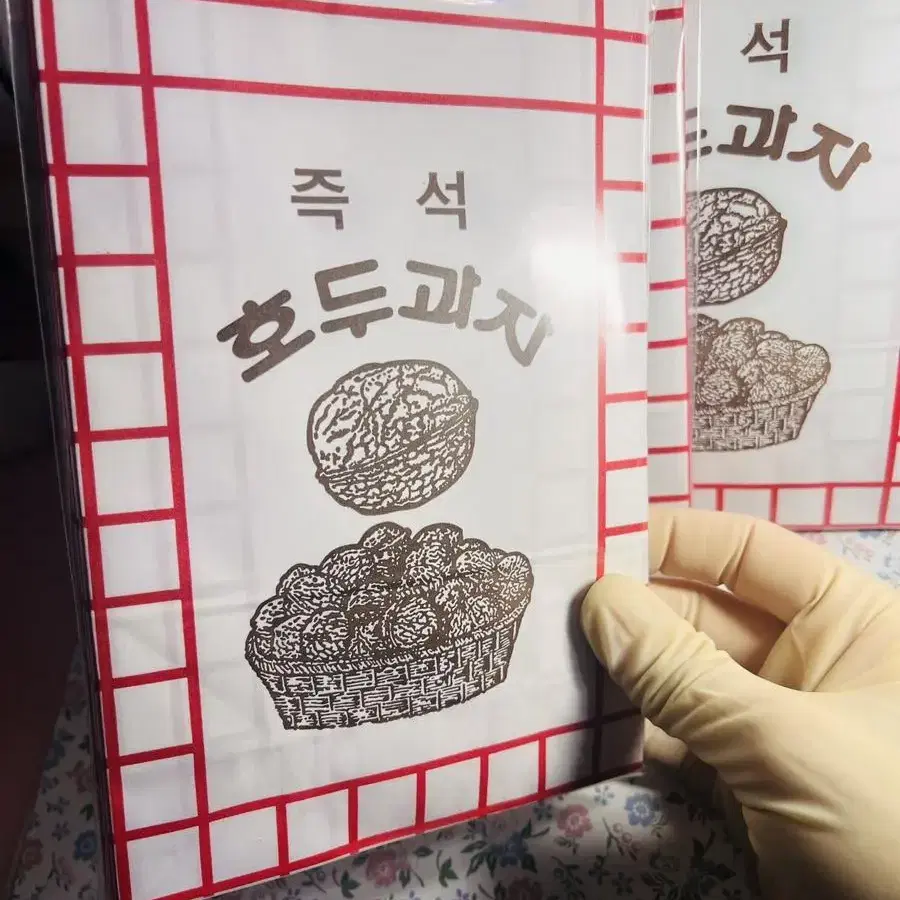 즉 석
호두과자
석
과자